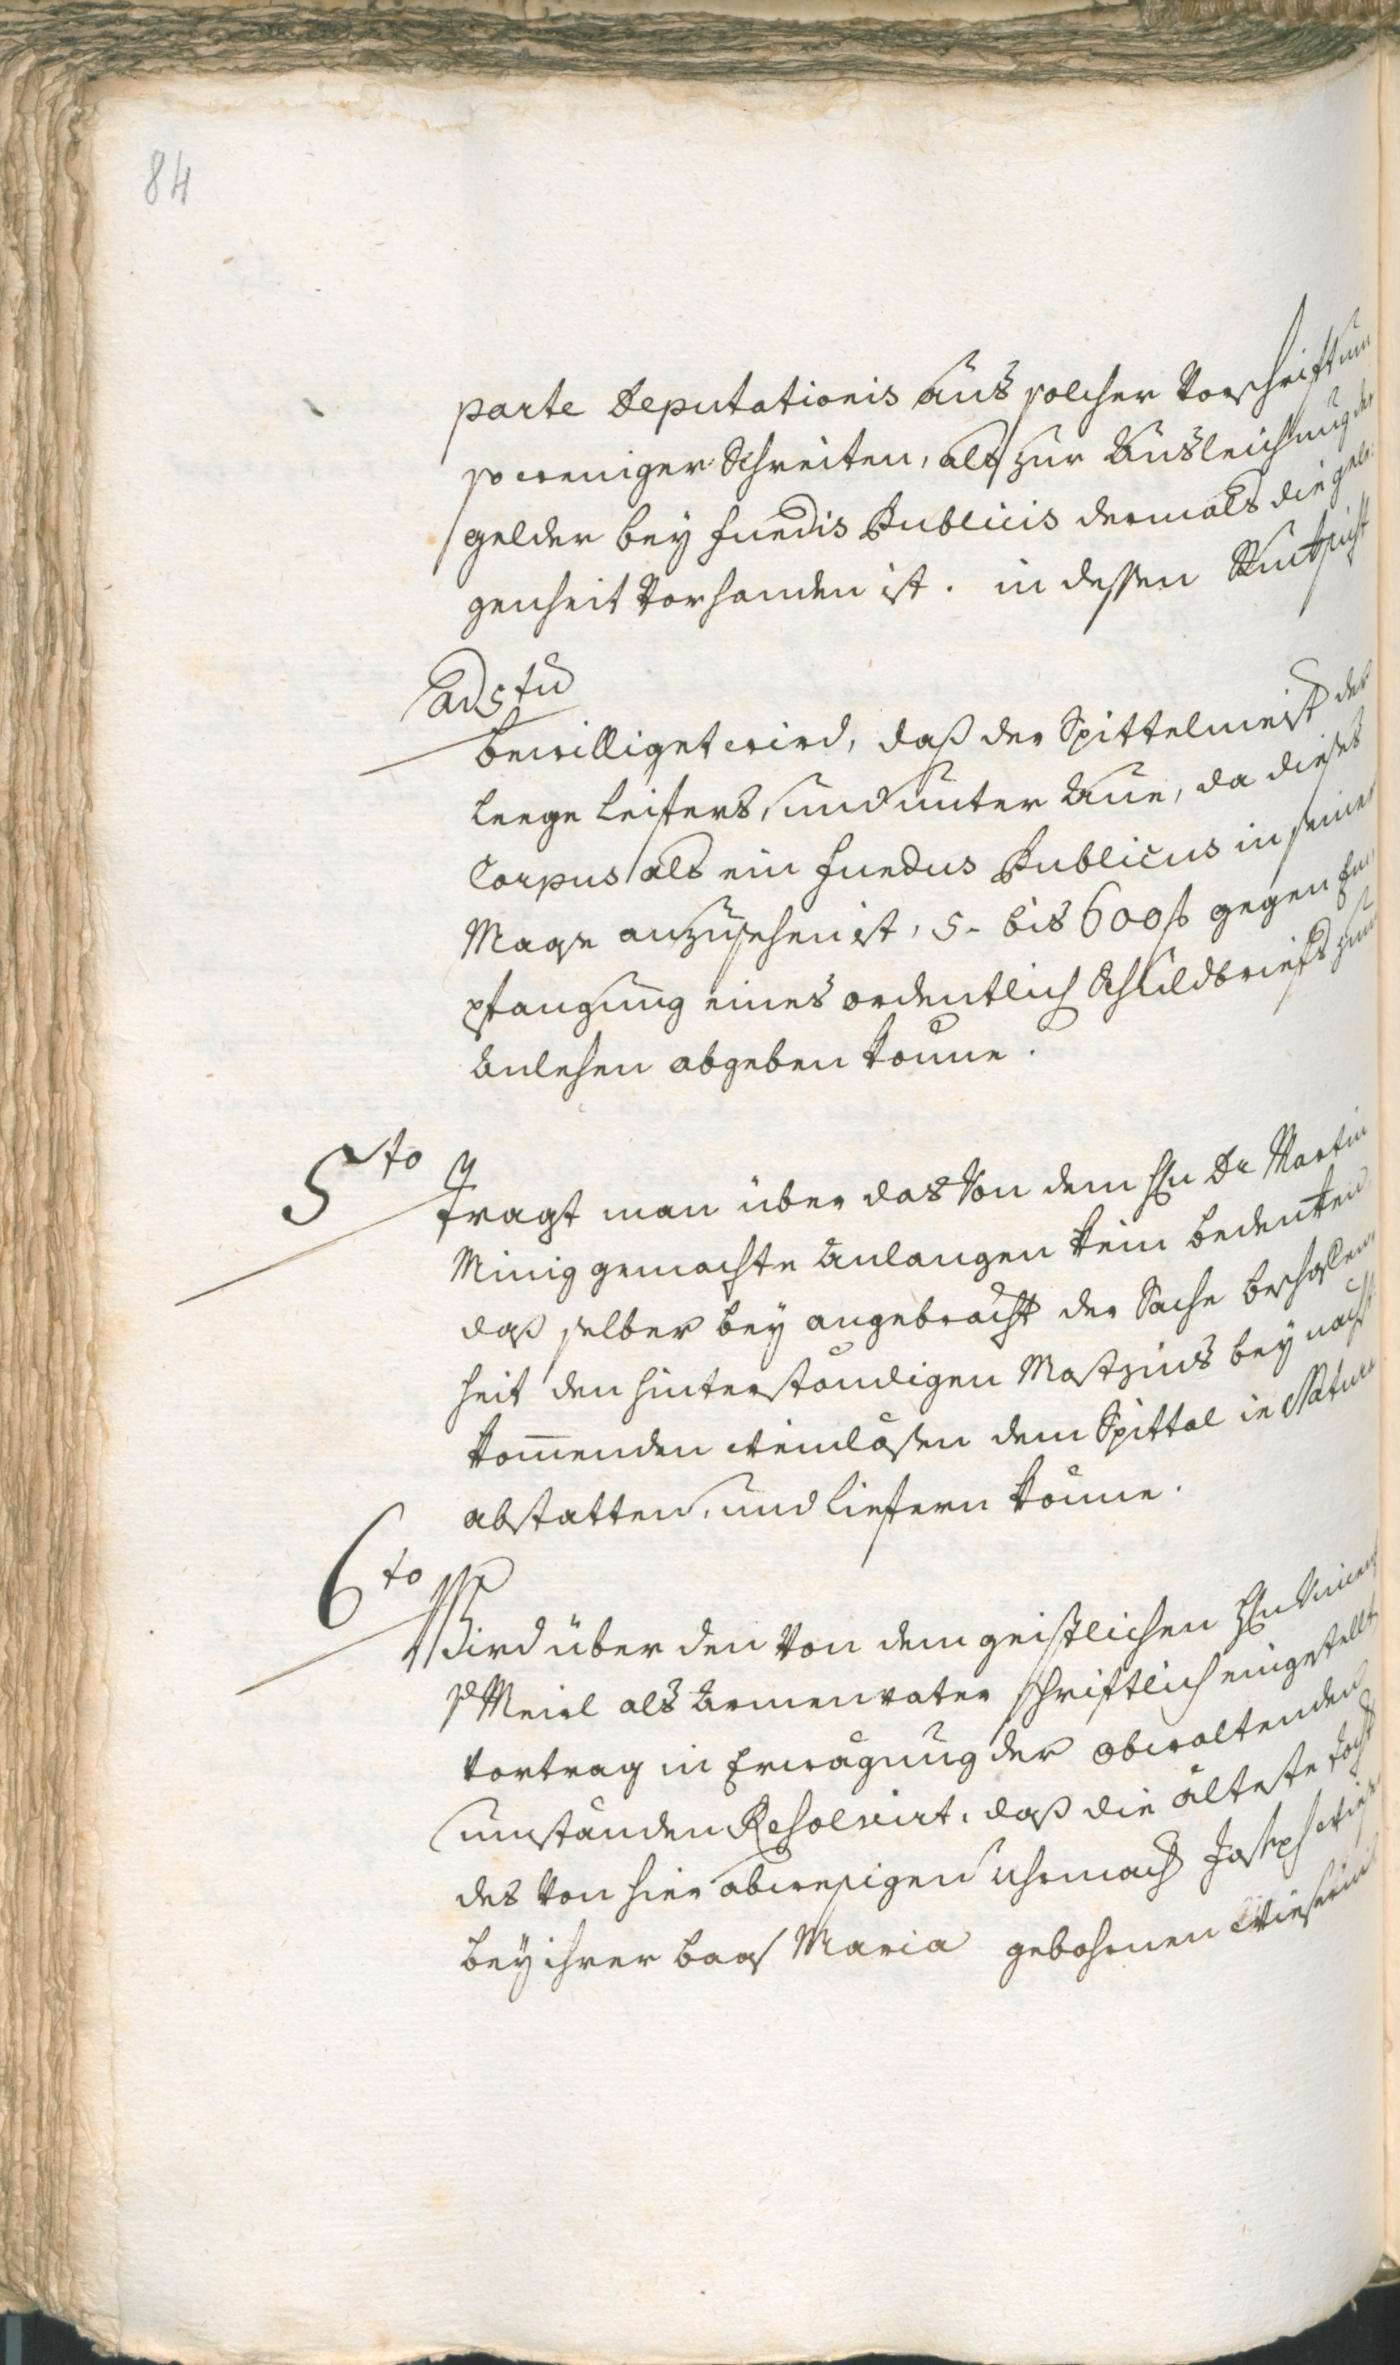 84
parte Deputationis aus solcher Vorschrift um
so weniger Schreiten, als zur Ausleichung der
gelder bey fundis Publicis dermals die gele:
genheit Vorhanden ist. in dessen Rücksicht
ad 5tu
bewilliget wird, daß der Spittelmeist der
und unter Aue, da dieses
Corpus als ein fundus Publicus in seiner
Mase anzusehen ist, 5- bis 600 f gegen Em
pfangung eines ordentlich Schuldbriefs zum
Anlehen abgeben könne.
5to
Tragt man über das Von dem Hn Dr Martin
Minig gemachte Anlangen kein bedenken
daß selber bey angebracht der Sache beschaffen
heit den hinterständigen Mostzins bey nächst
kommenden Weinlösen dem Spittal in Natura
abstatten, und liefern könne.
6to
Wird über den Von dem geistlichen Hn
Meisl als Armenvater schriftlich eingestellt
Vortrag in Erwägung der obwaltenden
umständen Resolvirt, daß die älteste Tocht
des Von hier abwesigen Uhrmach Joseph Wieser
bey ihrer baas Maria gebohrnen Wieserin